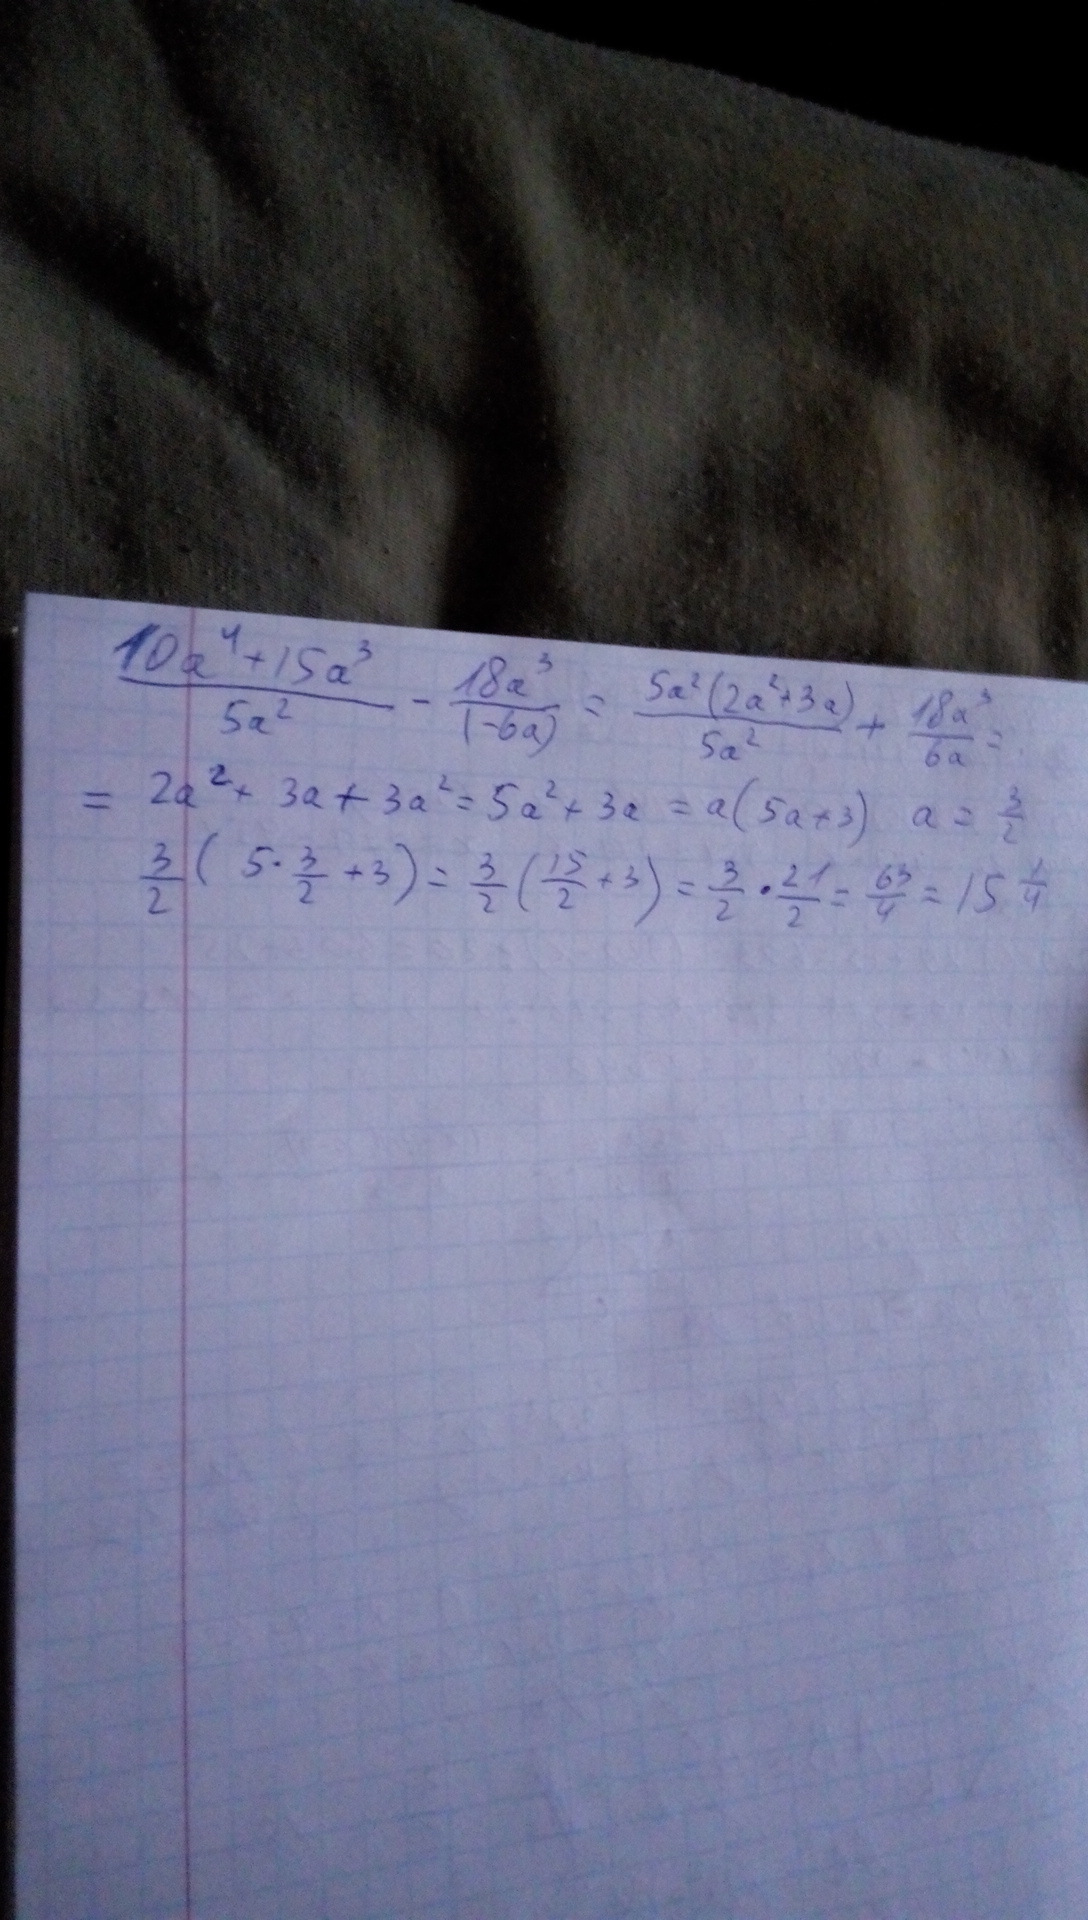 (10a⁴+15a³)/(5a²) - (18a³)/((-6a)) = (5a²(2a²+3a))/(5a²) + (18a³)/(6a) =
= 2a² + 3a + 3a² = 5a² + 3a = a(5a+3) a = 3/2
3/2 ( 5·3/2 +3) = 3/2 (15/2 +3) = 3/2 · 21/2 = 63/4 = 15 1/4